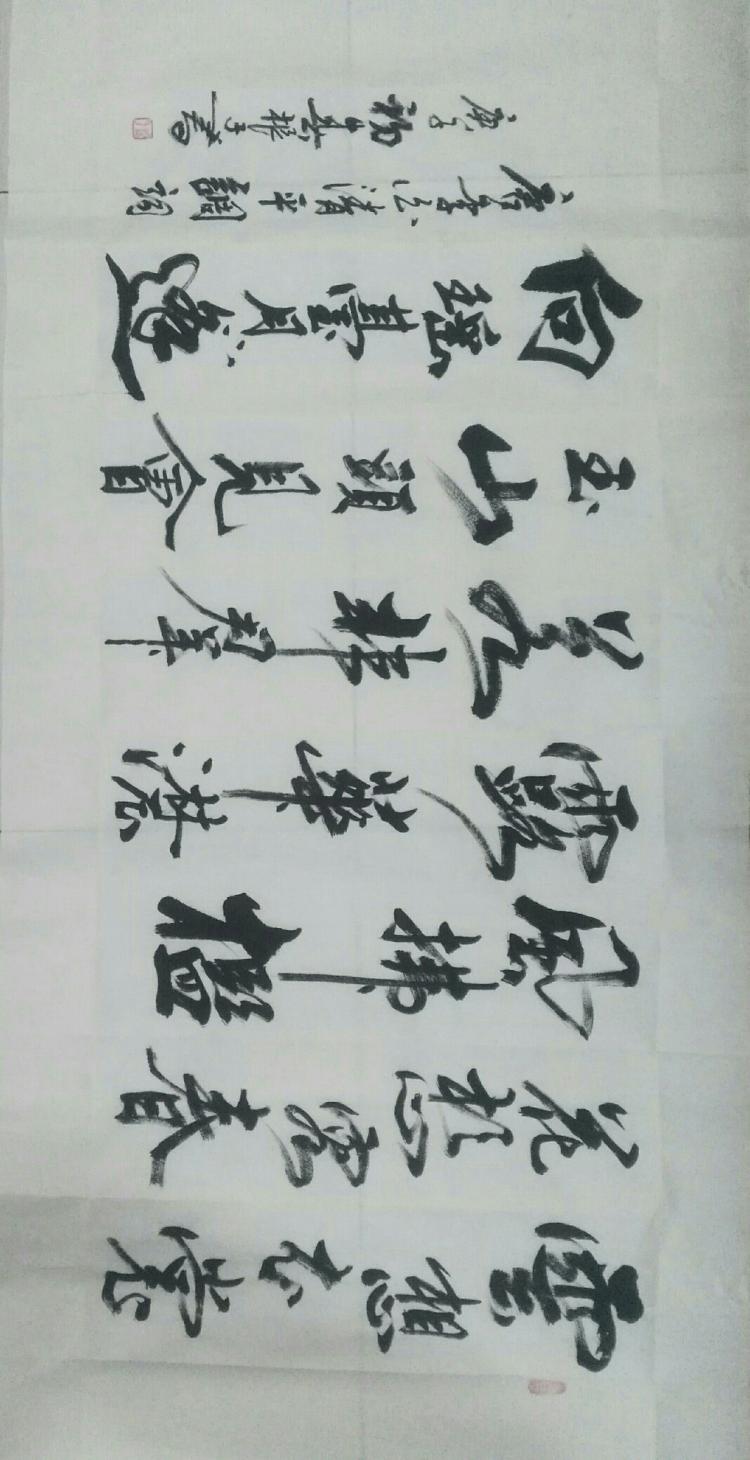 雲想衣裳
花想容春
風拂檻
露華濃
若非羣
玉山頭見會
向瑶臺月下逢
唐李白清平調詞
庚子初書